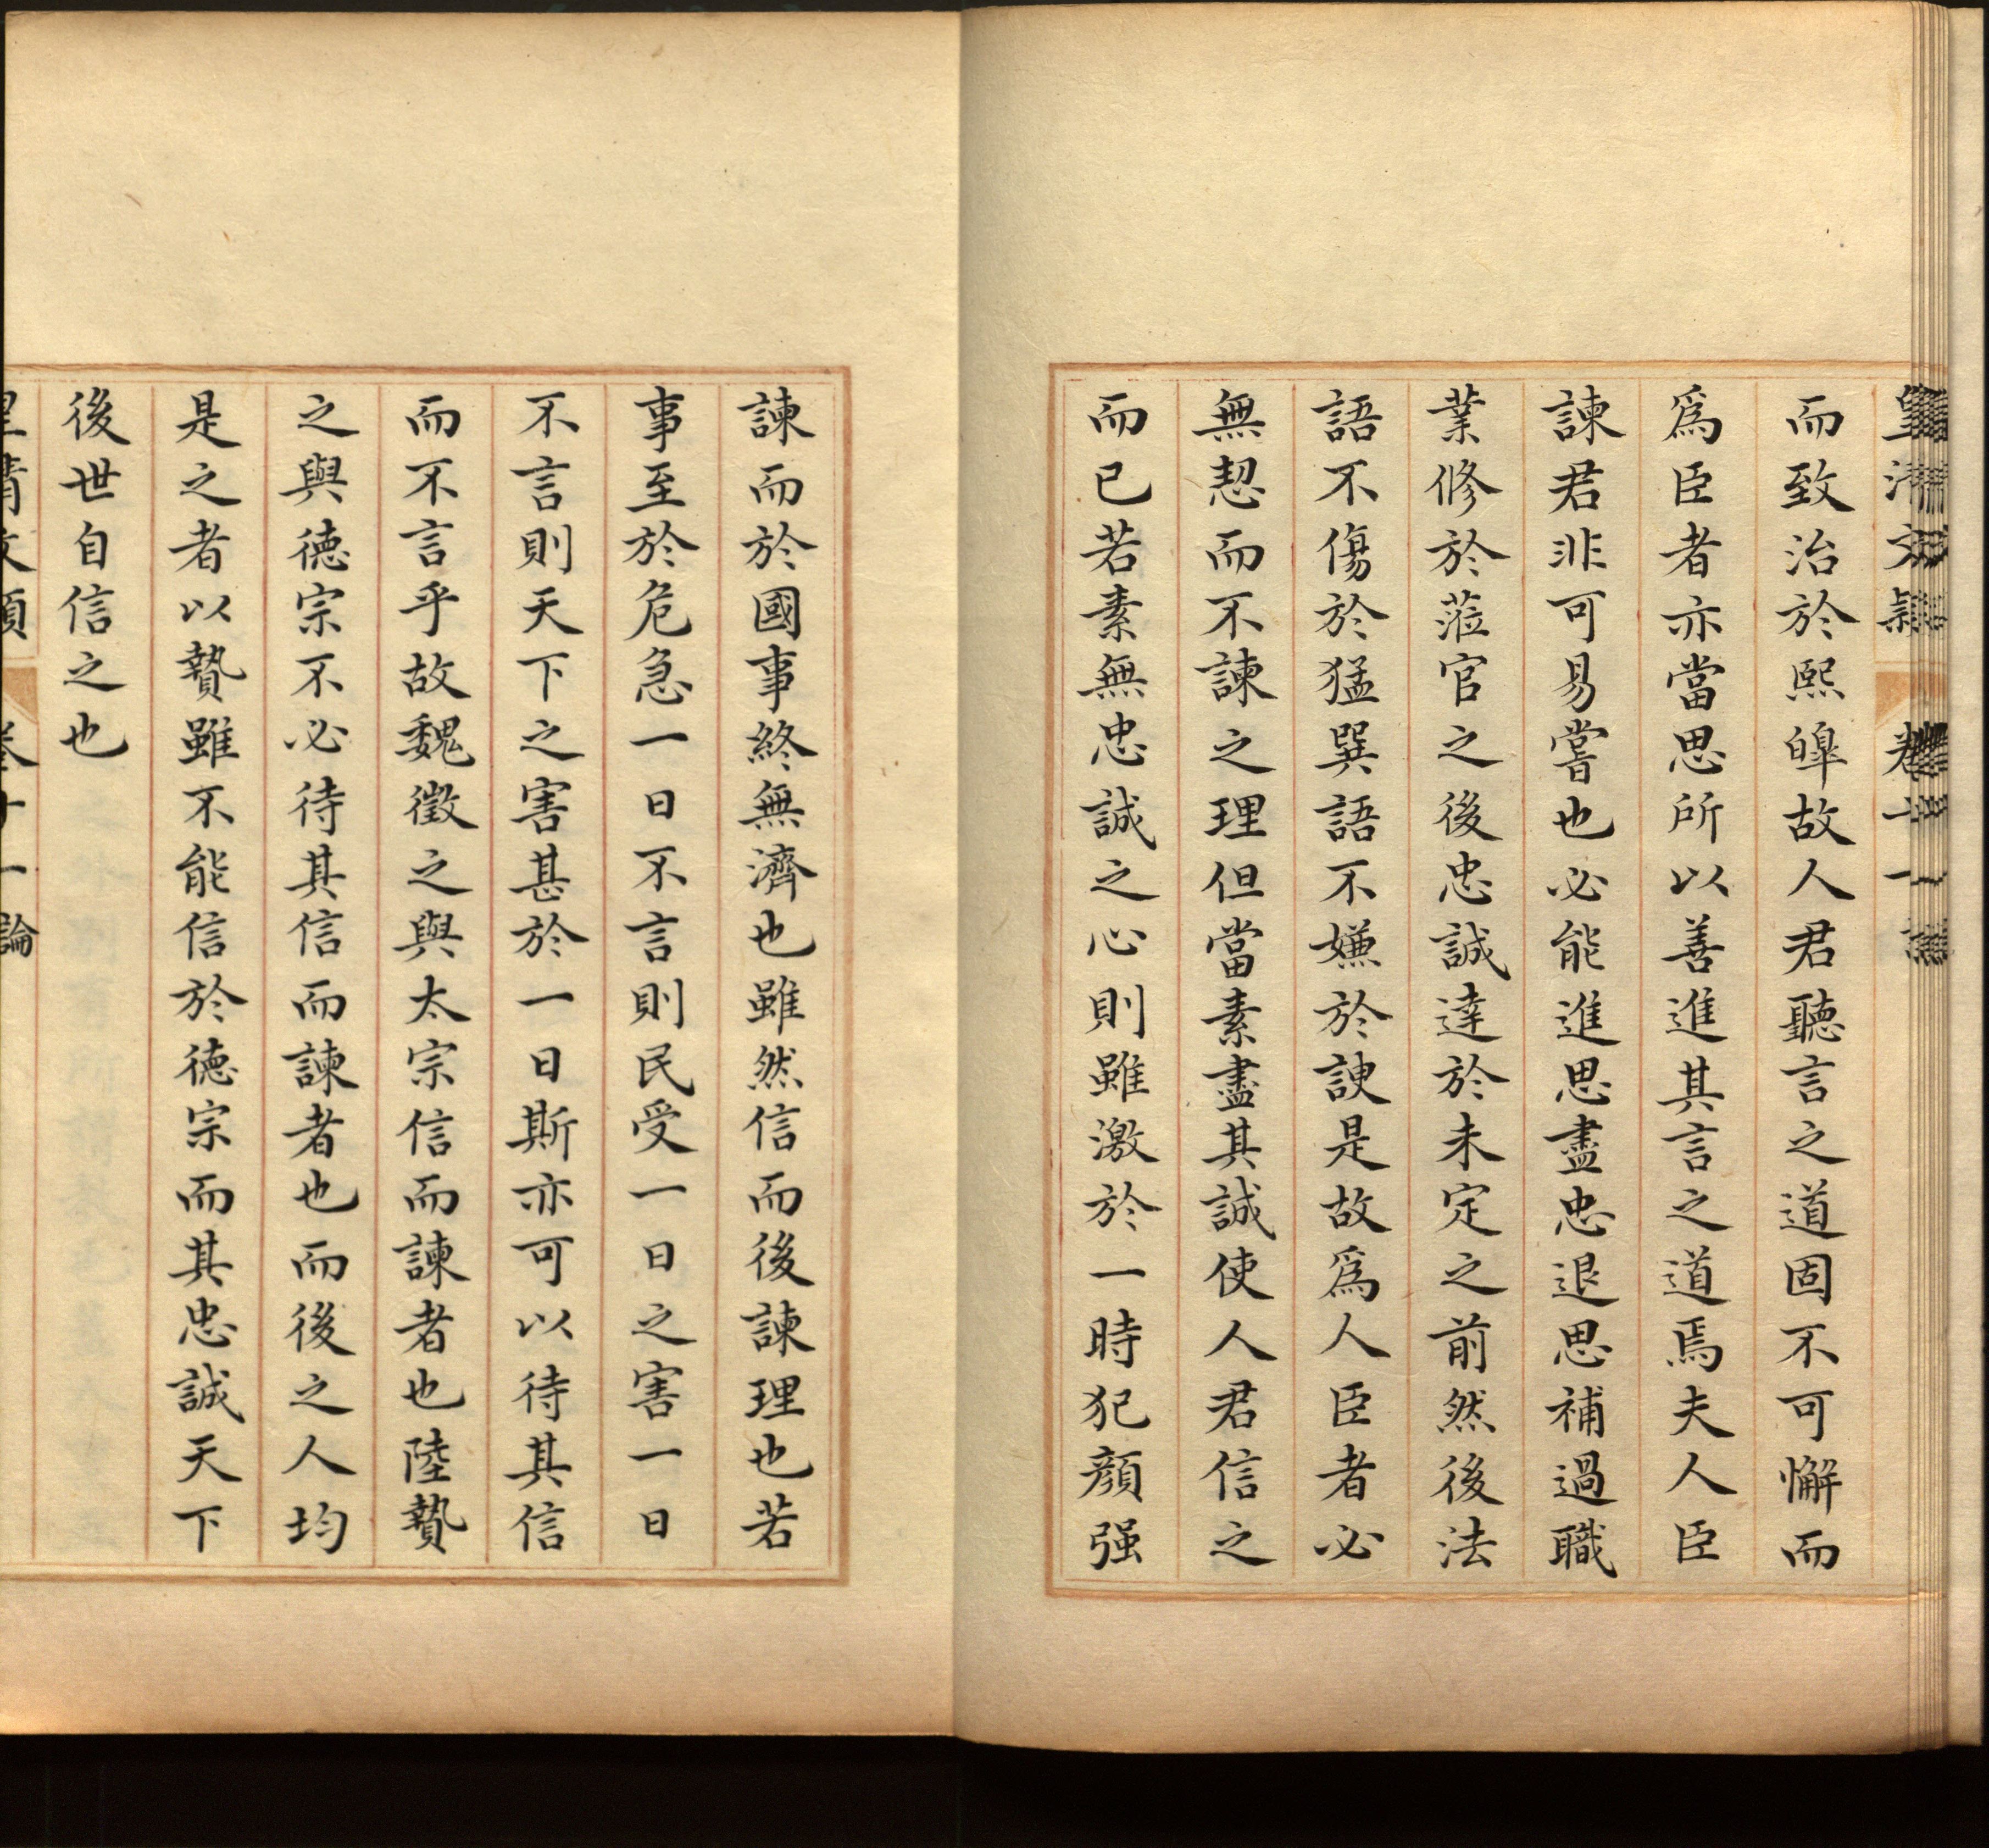 皇清文穎 卷十一 論
而致治於熙皞故人君聽言之道固不可懈而
爲臣者亦當思所以善進其言之道焉夫人臣
諫君非可易嘗也必能進思盡忠退思補過職
業修於涖官之後忠誠達於未定之前然後法
語不傷於猛巽語不嫌於諛是故爲人臣者必
無恝而不諫之理但當素盡其誠使人君信之
而已若素無忠誠之心則雖激於一時犯顏强
諫而於國事終無濟也雖然信而後諫理也若
事至於危急一日不言則民受一日之害一日
不言則天下之害甚於一日斯亦可以待其信
而不言乎故魏徵之與太宗信而諫者也陸贄
之與德宗不必待其信而諫者也而後之人均
是之者以贄雖不能信於德宗而其忠誠天下
後世自信之也
皇清文穎 卷十一 論